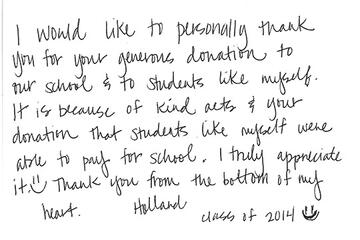 I would like to personally thank
you for your generous donation to
our school & to students like myself.
It is because of kind acts & your
donation that students like myself were
able to pay for school. I truly appreciate
it. Thank you from the bottom of my
heart. Holland
class of 2014